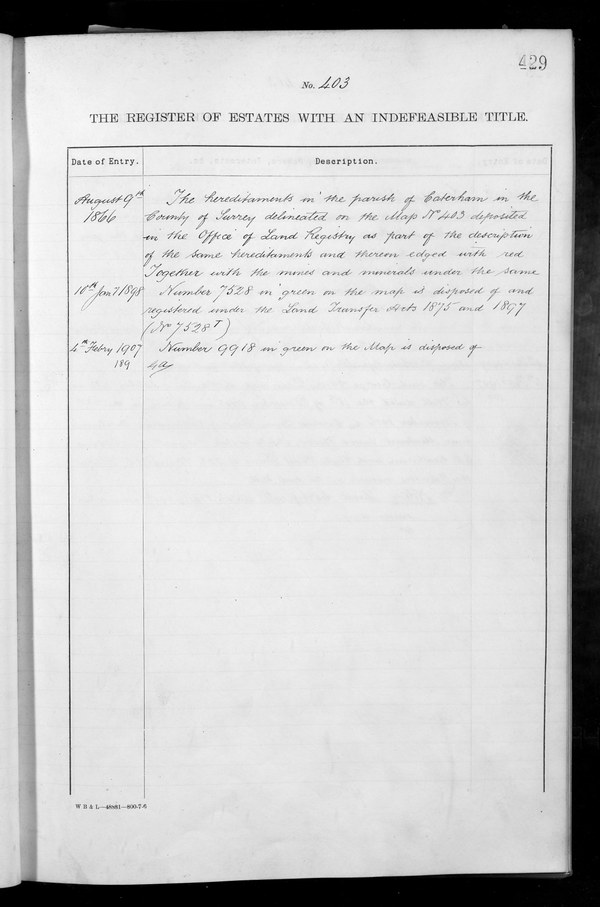 429
No. 403
THE REGISTER OF ESTATES WITH AN INDEFEASIBLE TITLE.
Date of Entry. Description.
August 9th The hereditaments in the parish of Caterham in the
1866 County of Surrey delineated on the Map No 403 deposited
in the Office of Land Registry as part of the description
of the same hereditaments and thereon edged with red
Together with the mines and minerals under the same
10th Jany 1898 Number 7528 in green on the map is disposed of and
registered under the Land Transfer Acts 1875 and 1897
(No 7528T)
4th Febry 1907 Number 9918 in green on the Map is disposed of
189
W B & L—46081—800-7-6